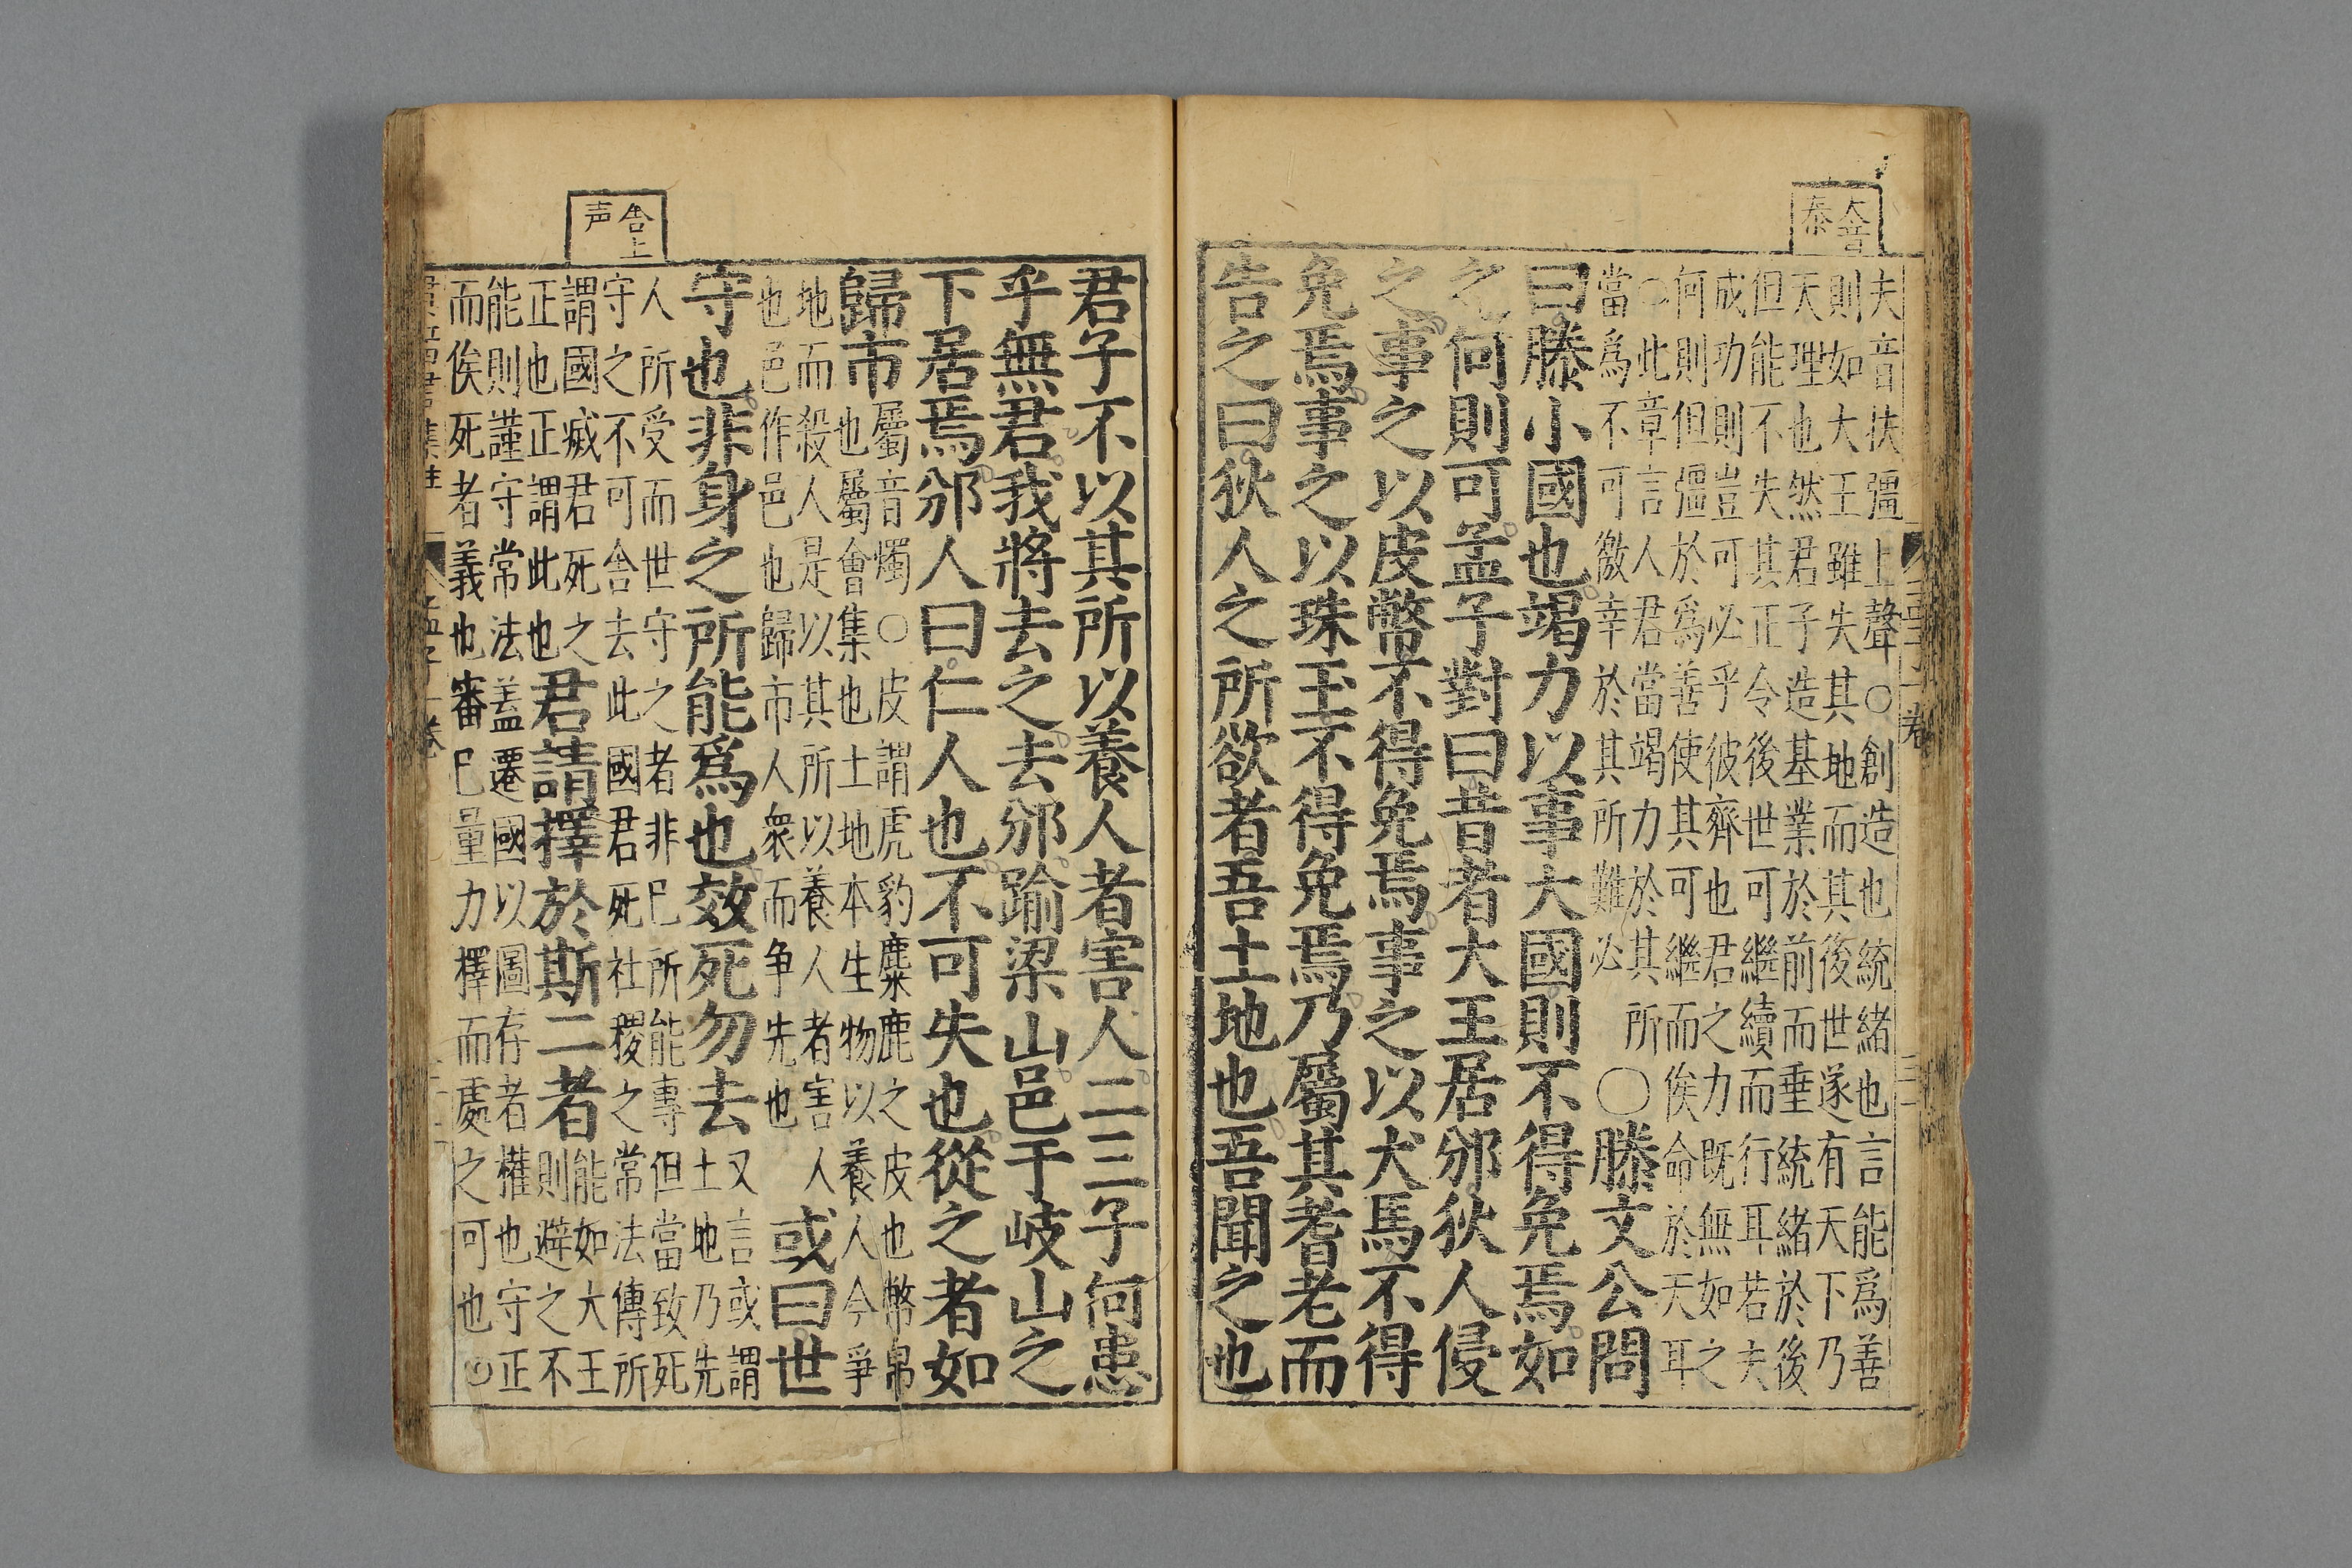 大音
泰
夫音扶彊上聲○創造也統緒也言能爲善
則如大王雖失其地而其後世遂有天下乃
天理也然君子造基業於前而垂統緒於後
但能不失其正令後世可繼續而行耳若夫
成功則豈可必乎彼齊也君之力既無如之
何則但彊於爲善使其可繼而俟命於天耳
○此章言人君當竭力於其所
當爲不可徼幸於其所難必
○滕文公問
曰滕小國也竭力以事大國則不得免焉如
之何則可孟子對曰昔者大王居邠狄人侵
之事之以皮幣不得免焉事之以犬馬不得
免焉事之以珠玉不得免焉乃屬其耆老而
告之曰狄人之所欲者吾土地也吾聞之也
舎上
声
君子不以其所以養人者害人二三子何患
乎無君我將去之去邠踰梁山邑于岐山之
下居焉邠人曰仁人也不可失也從之者如
歸市
屬音燭○皮謂虎豹麋鹿之皮也幣帛
也屬會集也土地本生物以養人今爭
地而殺人是以其所以養人者害人
也邑作邑也歸市人衆而争先也
或曰世
守也非身之所能爲也效死勿去
又言或謂
土地乃先
人所受而世守之者非巳所能專但當致死
守之不可舍去此國君死社稷之常法傳所
謂國滅君死之
正也正謂此也
君請擇於斯二者
能如大王
則避之不
能則謹守常法蓋遷國以圖存者權也守正
而俟死者義也審巳量力擇而處之可也○